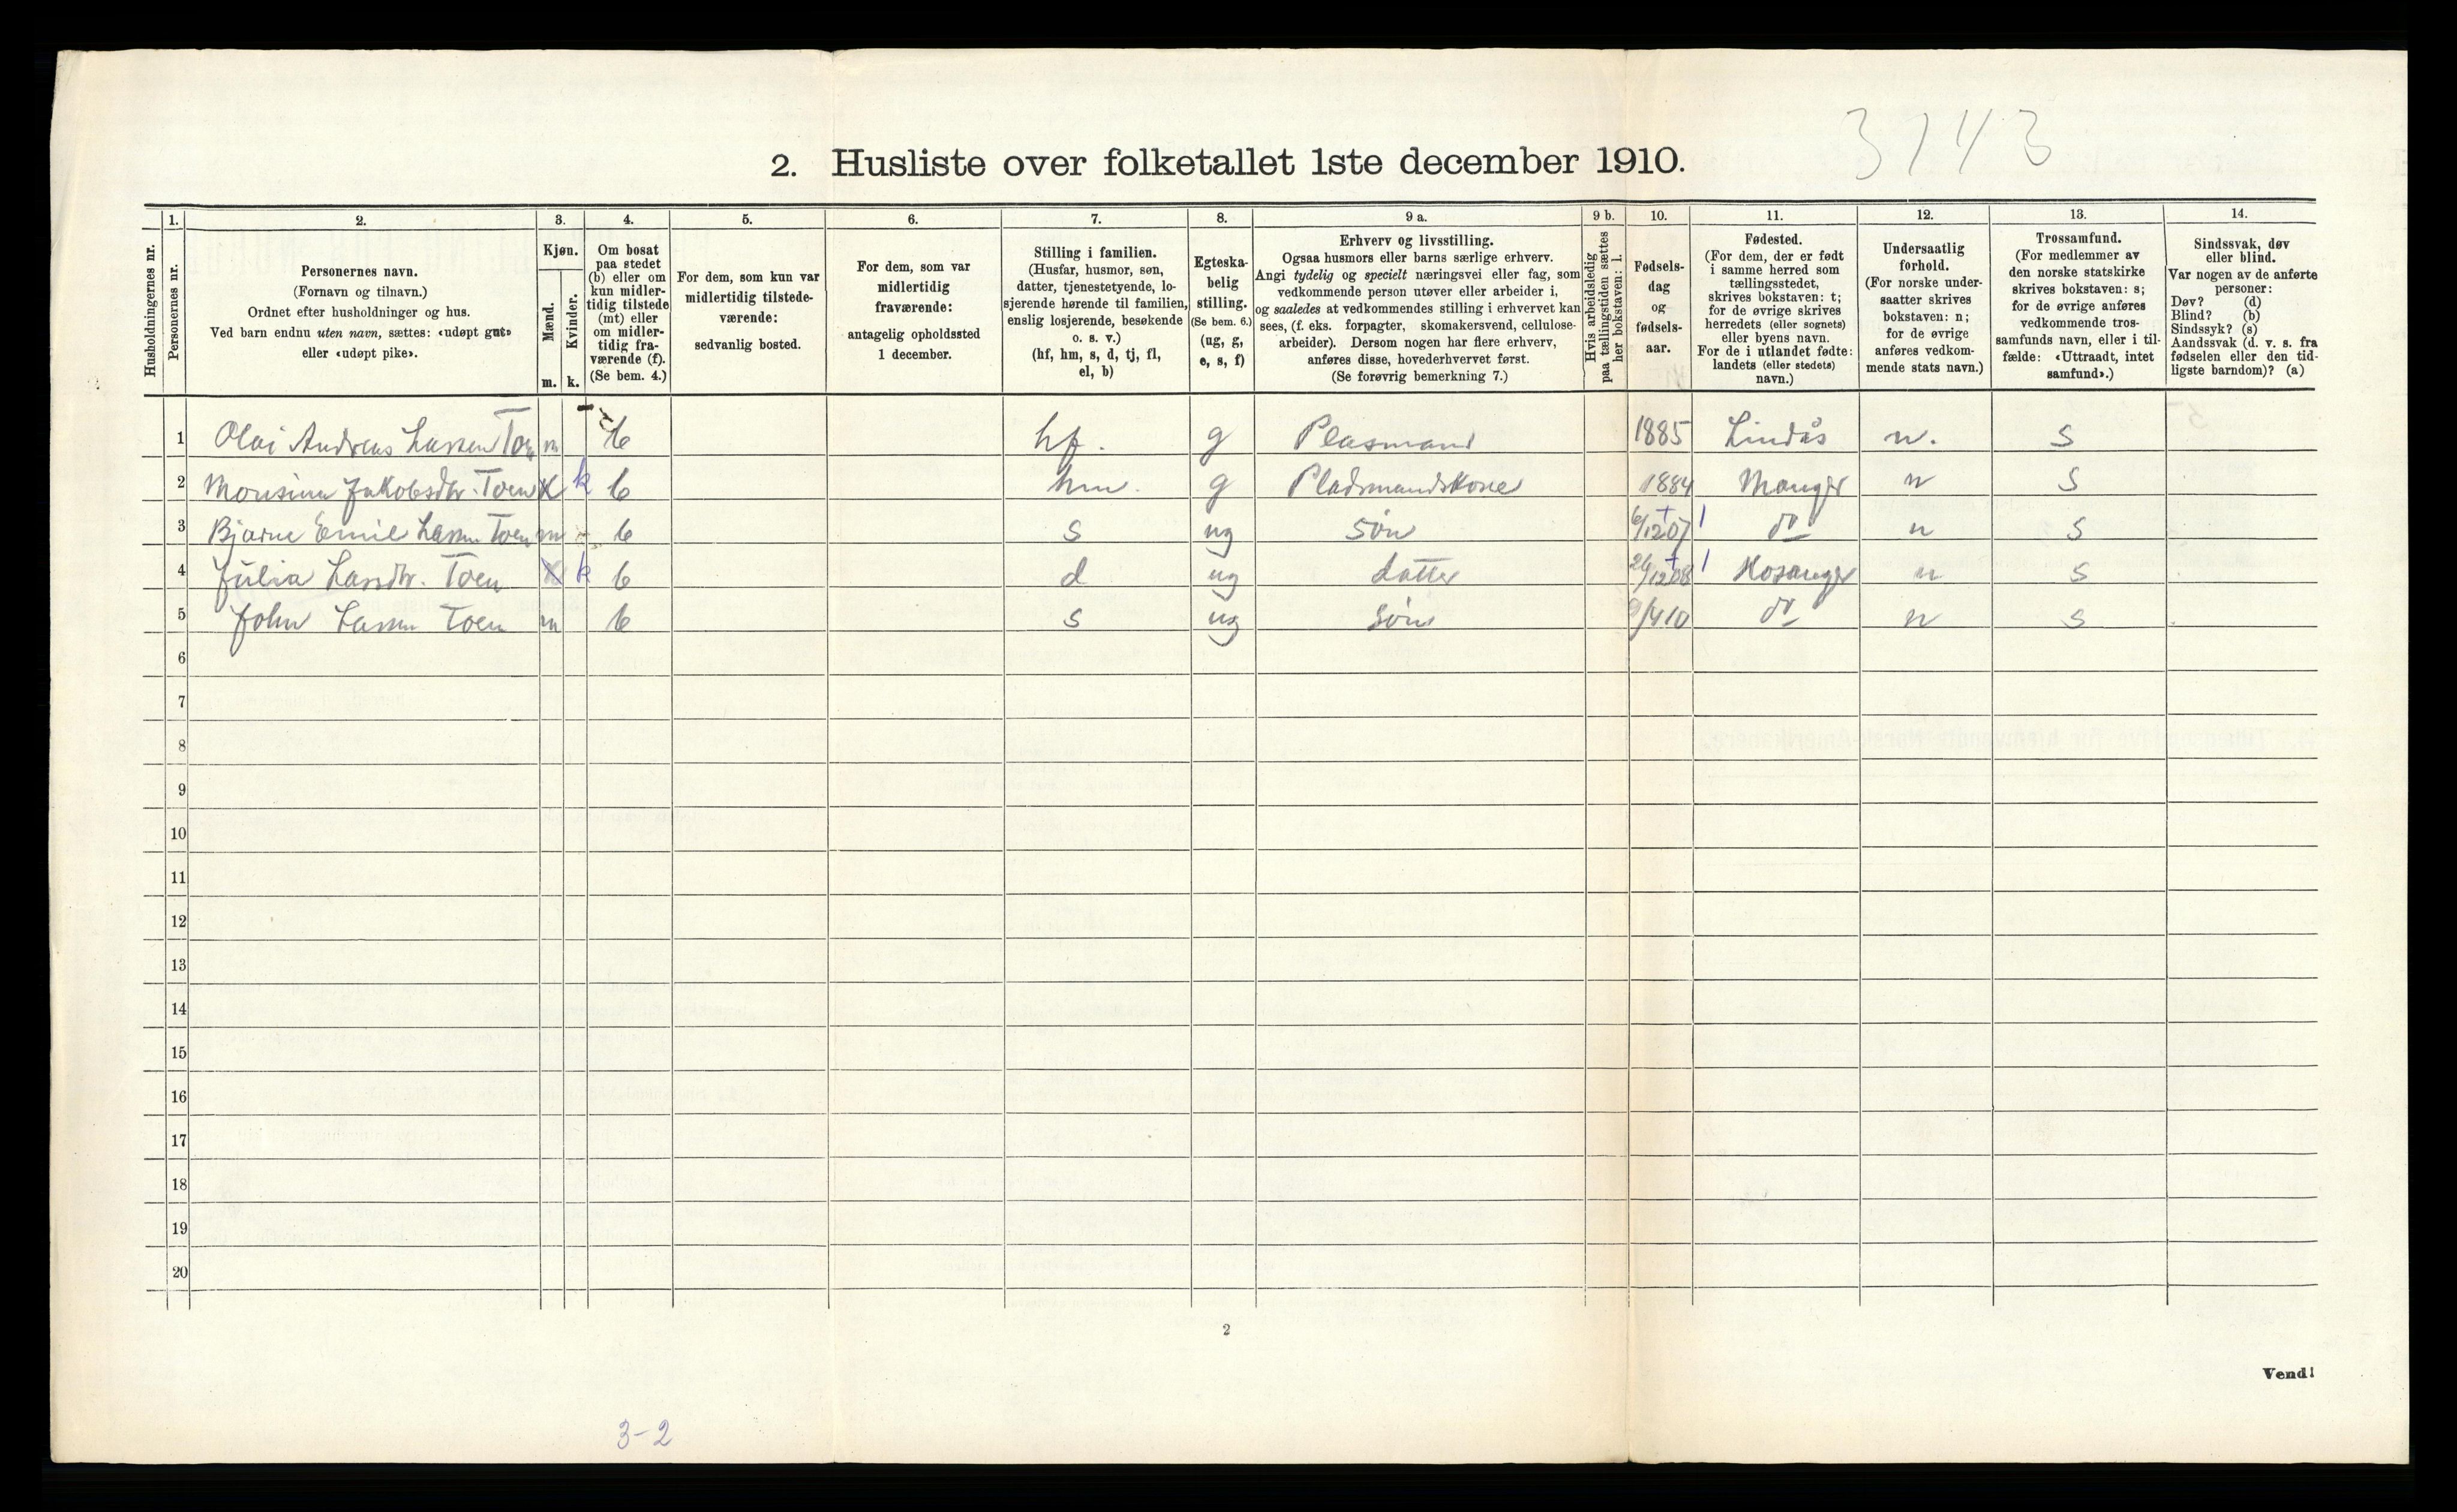 3143
2. Husliste over folketallet 1ste december 1910.
Husholdningernes nr.
1.
Personernes nr.
2.
Personernes navn.
(Fornavn og tilnavn.)
Ordnet efter husholdninger og hus.
Ved barn endnu uten navn, sættes: «udøpt gut»
eller «udøpt pike».
3.
Kjøn.
Mænd.
Kvinder.
m. k.
4.
Om bosat
paa stedet
(b) eller om
kun midler-
tidig tilstede
(mt) eller
om midler-
tidig fra-
værende (f).
(Se bem. 4.)
5.
For dem, som kun var
midlertidig tilstede-
værende:
sedvanlig bosted.
6.
For dem, som var
midlertidig
fraværende:
antagelig opholdssted
1 december.
7.
Stilling i familien.
(Husfar, husmor, søn,
datter, tjenestetyende, lo-
sjerende hørende til familien,
enslig losjerende, besøkende
o. s. v.)
(hf, hm, s, d, tj, fl,
el, b)
8.
Egteska-
belig
stilling.
(Se bem. 6.)
(ug, g,
e, s, f)
9 a.
Erhverv og livsstilling.
Ogsaa husmors eller barns særlige erhverv.
Angi tydelig og specielt næringsvei eller fag, som
vedkommende person utøver eller arbeider i,
og saaledes at vedkommendes stilling i erhvervet kan
sees, (f. eks. forpagter, skomakersvend, cellulose-
arbeider). Dersom nogen har flere erhverv,
anføres disse, hovederhvervet først.
(Se forøvrig bemerkning 7.)
9 b.
Hvis arbeidsledig
paa tællingstiden sættes
her bokstaven: l.
10.
Fødsels-
dag
og
fødsels-
aar.
11.
Fødested.
(For dem, der er født
i samme herred som
tællingsstedet,
skrives bokstaven: t;
for de øvrige skrives
herredets (eller sognets)
eller byens navn.
For de i utlandet fødte:
landets (eller stedets)
navn.)
12.
Undersaatlig
forhold.
(For norske under-
saatter skrives
bokstaven: n;
for de øvrige
anføres vedkom-
mende stats navn.)
13.
Trossamfund.
(For medlemmer av
den norske statskirke
skrives bokstaven: s;
for de øvrige anføres
vedkommende tros-
samfunds navn, eller i til-
fælde: «Uttraadt, intet
samfund».)
14.
Sindssvak, døv
eller blind.
Var nogen av de anførte
personer:
Døv? (d)
Blind? (b)
Sindssyk? (s)
Aandssvak (d. v. s. fra
fødselen eller den tid-
ligste barndom)? (a)
1 Olai Andreas Lassen Toen m b hf. g Plasmand 1885 Lindås n. s
2 Monsine Jakobsdtr. Toen k b hm. g Pladsmandskone 1884 Manger n s
3 Bjarne Emil Lassen Toen m b s ug Søn 6/12 07 do n s
4 Julia Lassdtr. Toen k b d ug datter 26/12 08 Hosanger n s
5 John Lassen Toen m b s ug Søn 9/4 10 do n s
6
7
8
9
10
11
12
13
14
15
16
17
18
19
20
2
Vend!
3-2